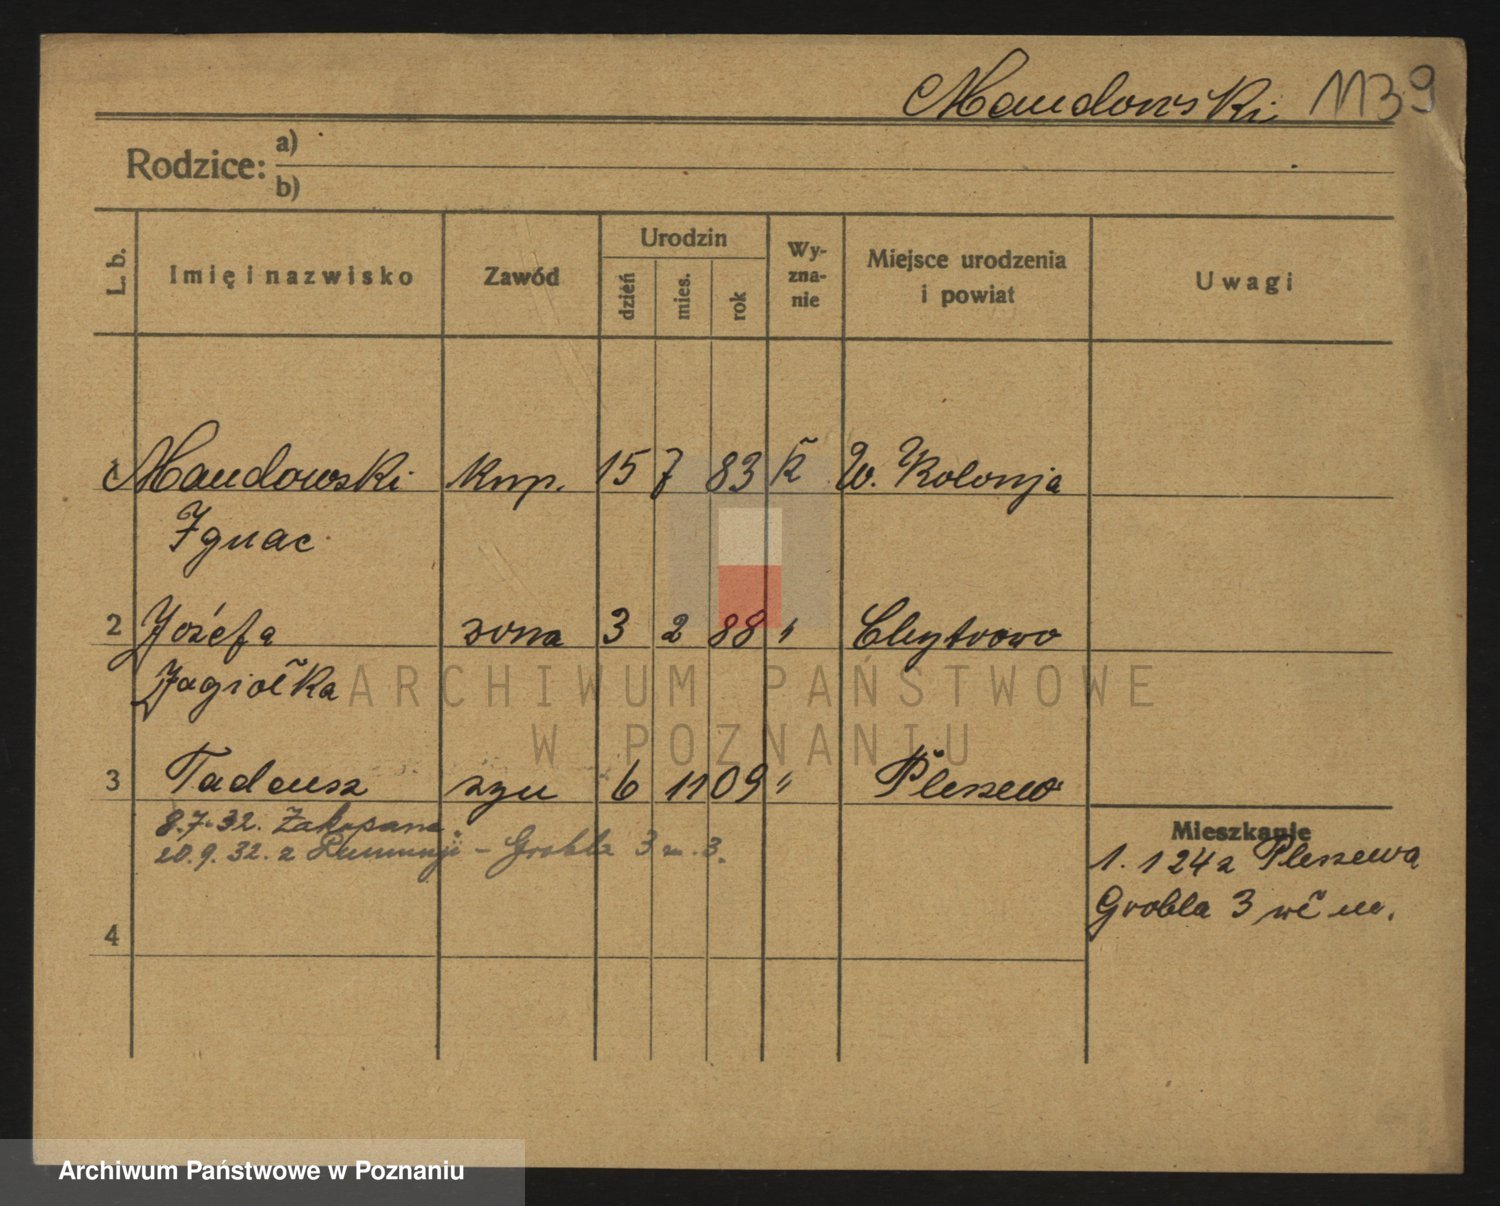 Mandowski 1139
Rodzice: a)
b)
L. b. Imię i nazwisko Zawód Urodzin dzień mies. rok Wy-zna-nie Miejsce urodzenia i powiat Uwagi
1 Mandowski kup. 15 7 83 k W. Kolonja
Ignac
2 Józefa żona 3 2 88 "
Jagiołka
3 Tadeusz syn 6 11 09 " Pleszew
8.7.32. Zakopane
20.9.32. z Rumunji - Grobla 3 m. 3.
4
Mieszkanie
1. 1 24 z Pleszewa
Grobla 3 wł m.
ARCHIWUM PAŃSTWOWE
W POZNANIU
Archiwum Państwowe w Poznaniu